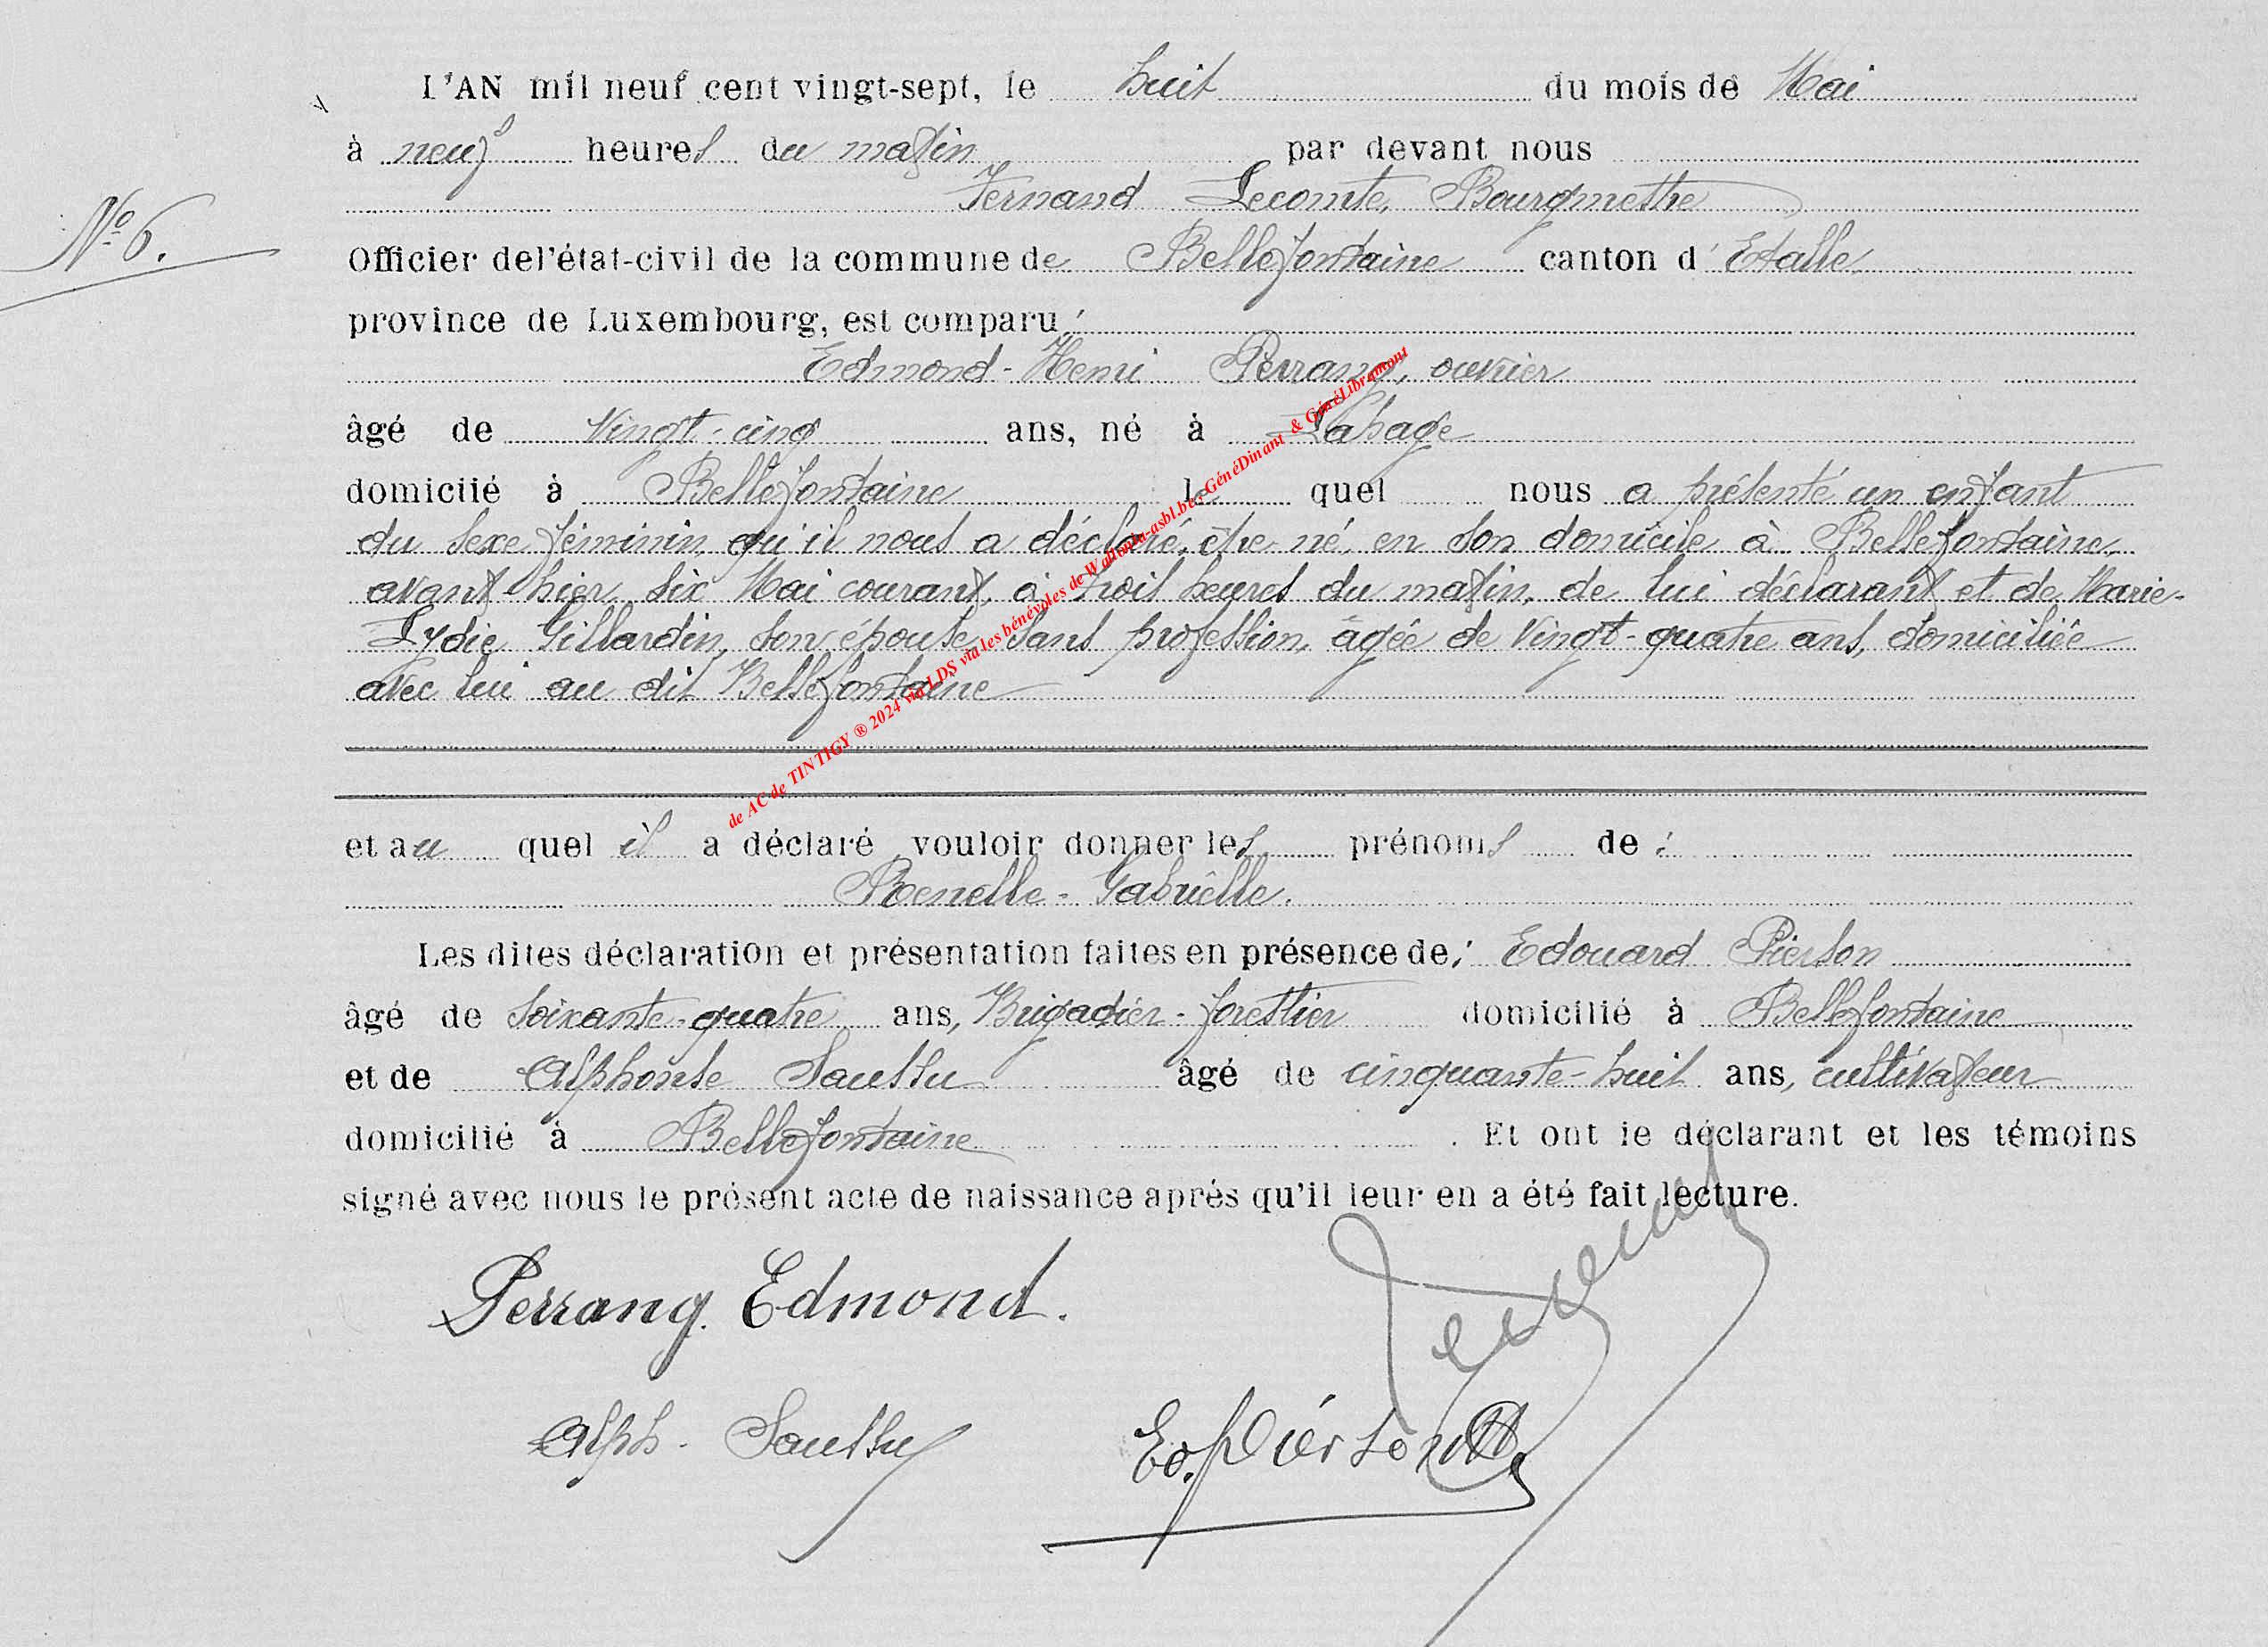 L'AN mil neuf cent vingt-sept, le huit du mois de Mai
à neuf heures du matin par devant nous
Fernand Lecomte, Bourgmestre
N° 6.
Officier de l'état-civil de la commune de Bellefontaine canton d'Etalle
province de Luxembourg, est comparu :
Edmond-Henri Perrang, ouvrier
âgé de vingt-cinq ans, né à Lahage
domicilié à Bellefontaine lequel nous a présenté un enfant
du sexe féminin qu'il nous a déclaré être né en son domicile à Bellefontaine,
avant hier six Mai courant, à trois heures du matin, de lui déclarant et de Marie-
Lydie Gillardin, son épouse, sans profession, âgée de vingt-quatre ans, domiciliée
avec lui au dit Bellefontaine
et au quel il a déclaré vouloir donner les prénoms de :
Renelle-Gabrielle.
Les dites déclaration et présentation faites en présence de : Edouard Pierson
âgé de soixante-quatre ans, Brigadier-forestier domicilié à Bellefontaine
et de Alphonse Saussu âgé de cinquante-huit ans, cultivateur
domicilié à Bellefontaine. Et ont le déclarant et les témoins
signé avec nous le présent acte de naissance après qu'il leur en a été fait lecture.
Perrang Edmond.
Alph. Saussu
Ed. Pierson
de AC de TINTIGY ® 2024 via LDS via les bénévoles de Wallonia-asbl.be, GénéDinant & GénéLibramont